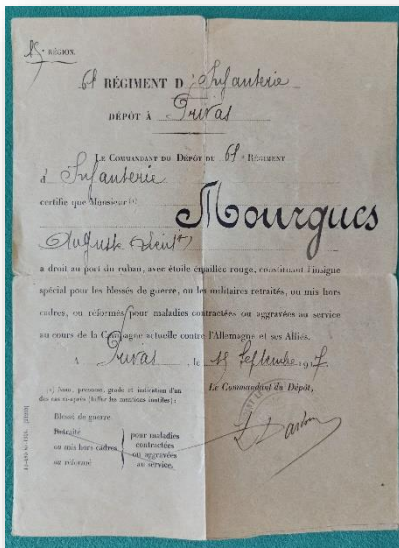 15e RÉGION
61e RÉGIMENT D'Infanterie
DÉPÔT À Privas
LE COMMANDANT DU DÉPÔT DU 61e RÉGIMENT
d'Infanterie
certifie que Monsieur (1) Mourgues
Auguste
a droit au port du ruban, avec étoile émaillée rouge, constituant l'insigne
spécial pour les blessés de guerre, ou les militaires retraités, ou mis hors
cadres, ou réformés pour maladies contractées ou aggravées au service
au cours de la Campagne actuelle contre l'Allemagne et ses Alliés.
A Privas, le 15 Septembre 1917.
(1) Nom, prénoms, grade et indication d'un
des cas ci-après (biffer les mentions inutiles) :
Blessé de guerre
Retraité
ou mis hors cadres
ou réformé
pour maladies
contractées
ou aggravées
au service.
Le Commandant du Dépôt,